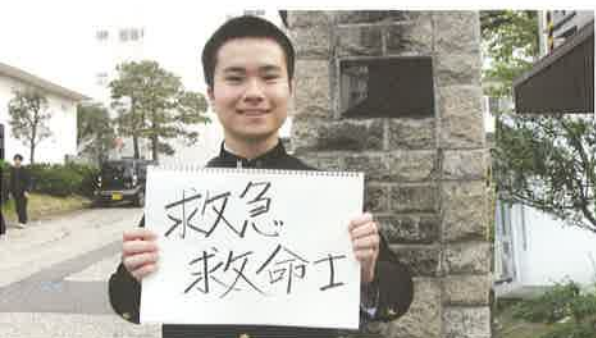 救急
救命士